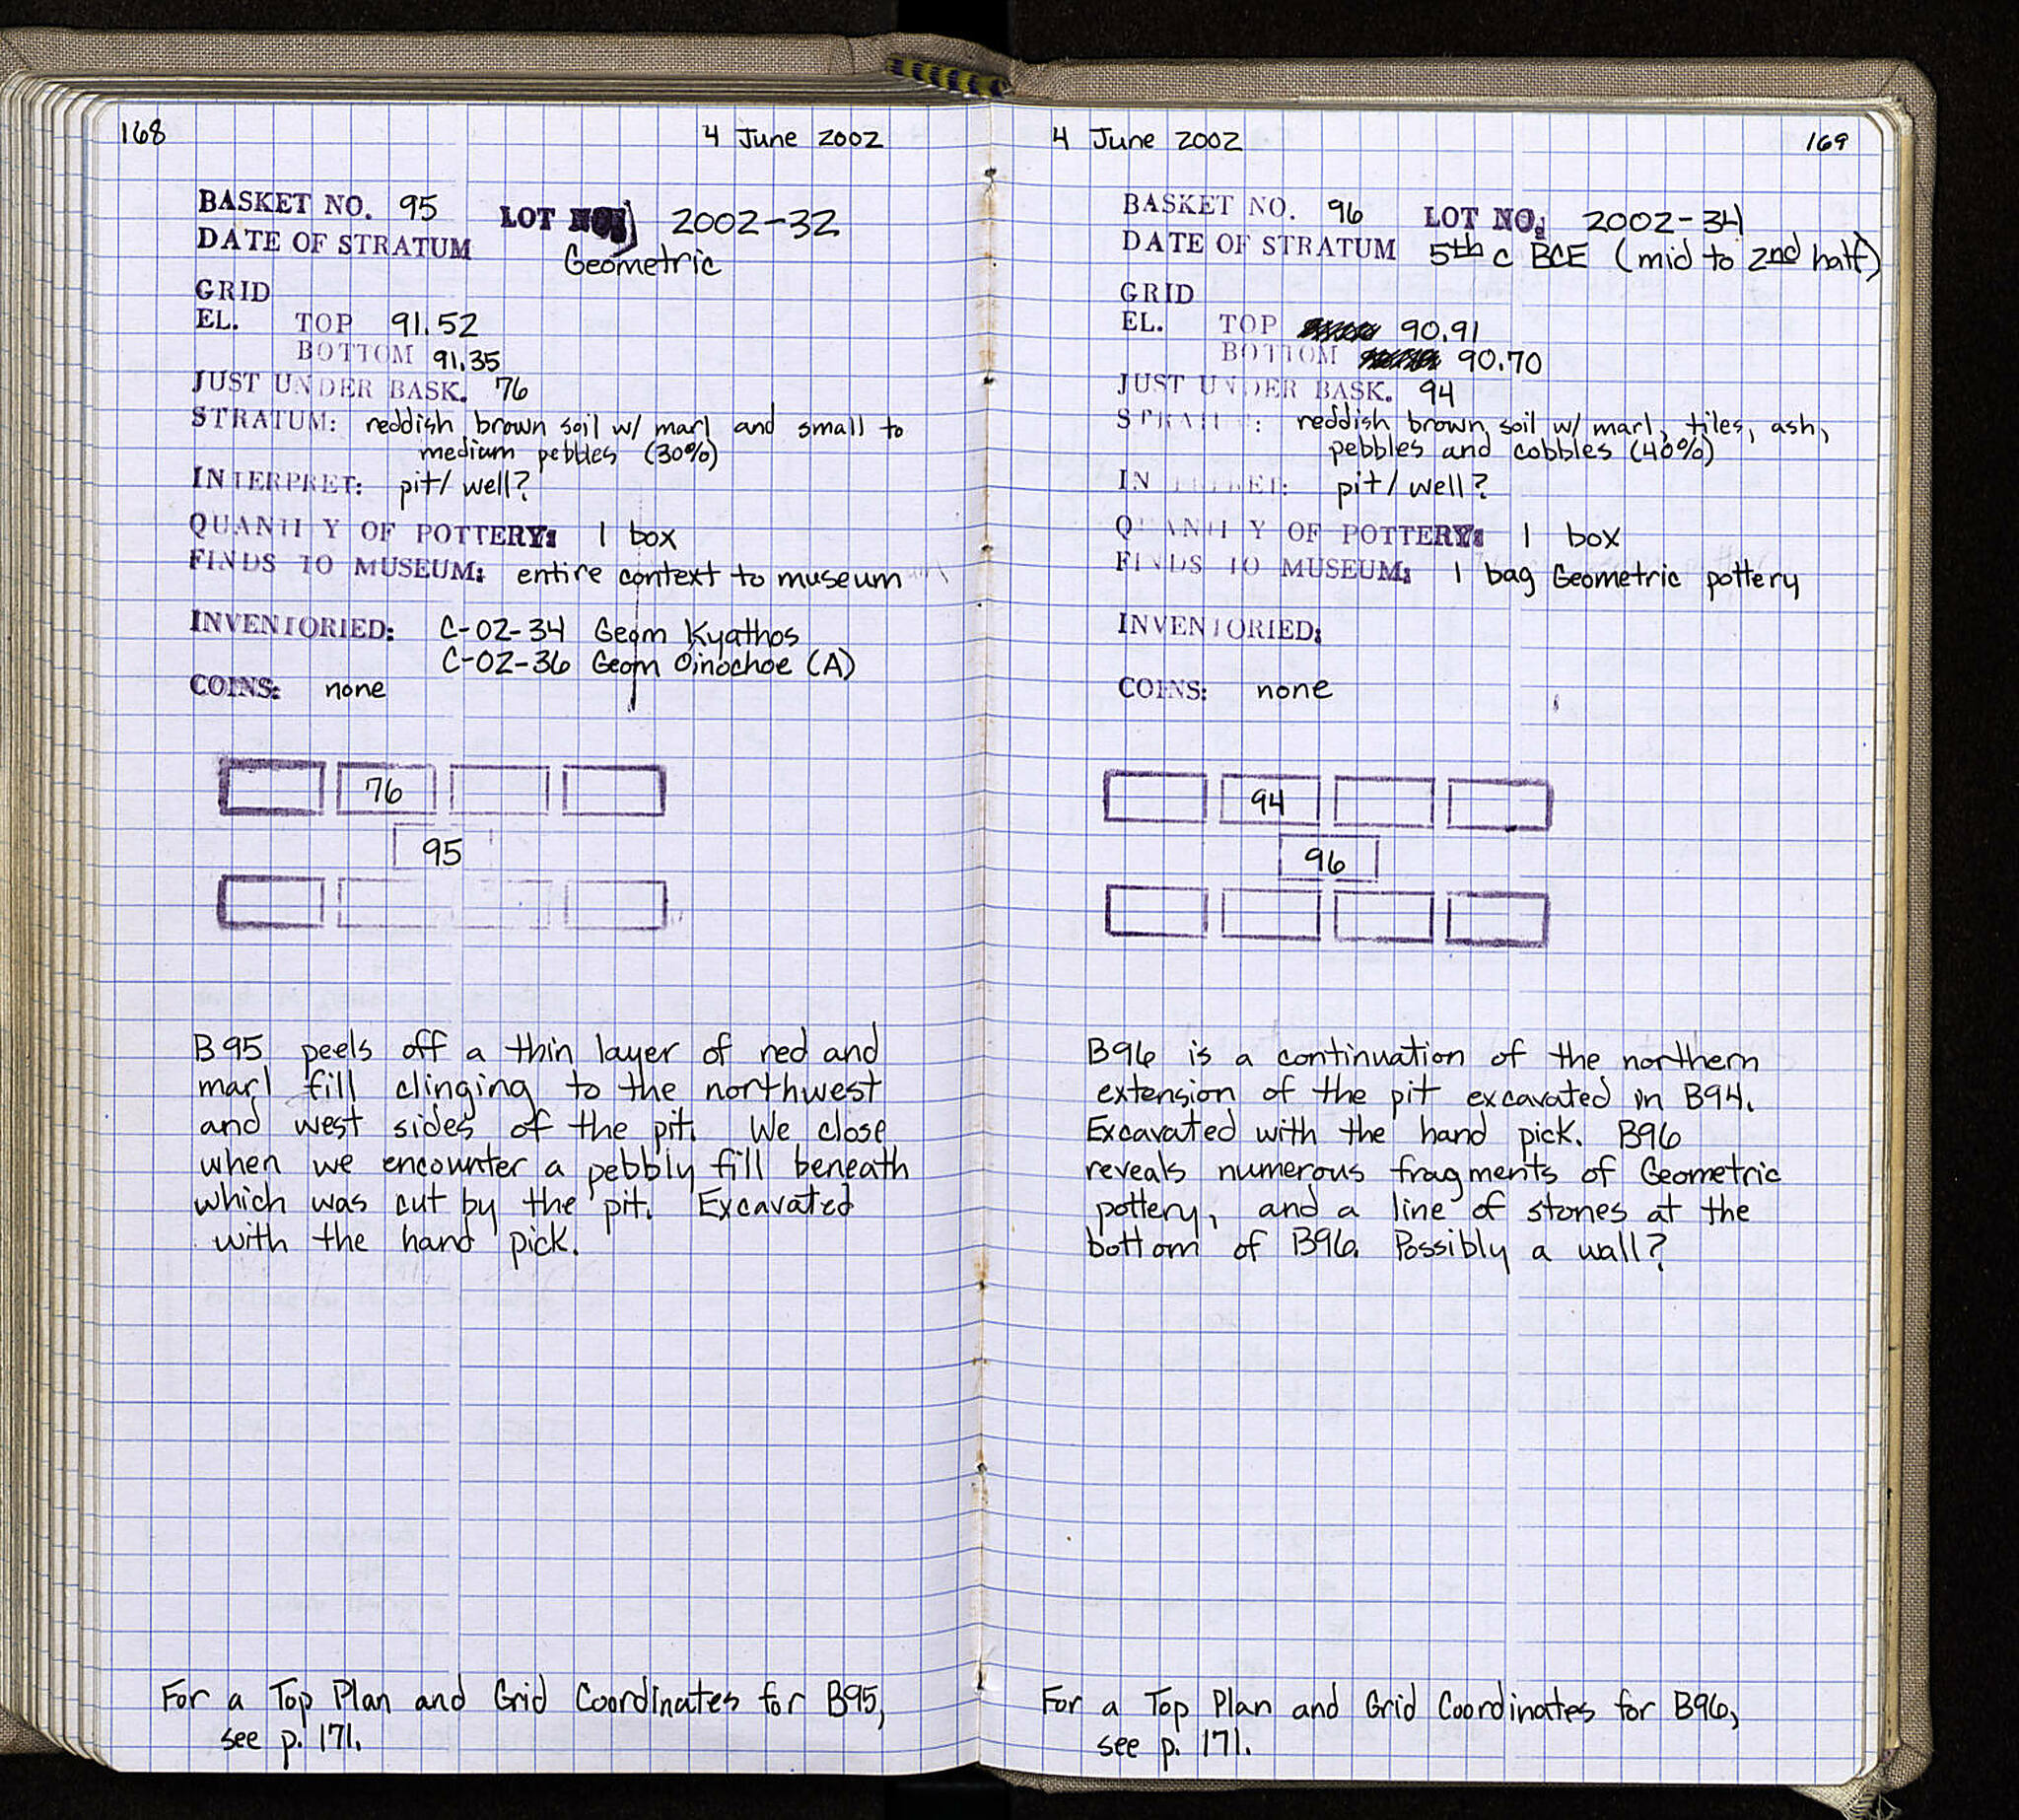 168
4 June 2002
BASKET NO. 95 LOT NO. 2002-32
DATE OF STRATUM Geometric
GRID
EL. TOP 91.52
BOTTOM 91.35
JUST UNDER BASK. 76
STRATUM: reddish brown soil w/ marl and small to
medium pebbles (30%)
INTERPRET: pit/ well?
QUANTITY OF POTTERY: 1 box
FINDS TO MUSEUM: entire context to museum
INVENTORIED: C-02-34 Geom Kyathos
C-02-36 Geom Oinochoe (A)
COINS: none
76
95
B95 peels off a thin layer of red and
marl fill clinging to the northwest
and west sides of the pit. We close
when we encounter a pebbly fill beneath
which was cut by the pit. Excavated
with the hand pick.
For a Top Plan and Grid Coordinates for B95,
see p. 171.
4 June 2002
169
BASKET NO. 96 LOT NO. 2002-34
DATE OF STRATUM 5th c BCE (mid to 2nd half)
GRID
EL. TOP 90.91
BOTTOM 90.70
JUST UNDER BASK. 94
STRATUM: reddish brown soil w/ marl, tiles, ash,
pebbles and cobbles (40%)
INTERPRET: pit/ well?
QUANTITY OF POTTERY: 1 box
FINDS TO MUSEUM: 1 bag Geometric pottery
INVENTORIED:
COINS: none
94
96
B96 is a continuation of the northern
extension of the pit excavated in B94.
Excavated with the hand pick. B96
reveals numerous fragments of Geometric
pottery, and a line of stones at the
bottom of B96. Possibly a wall?
For a Top Plan and Grid Coordinates for B96,
see p. 171.